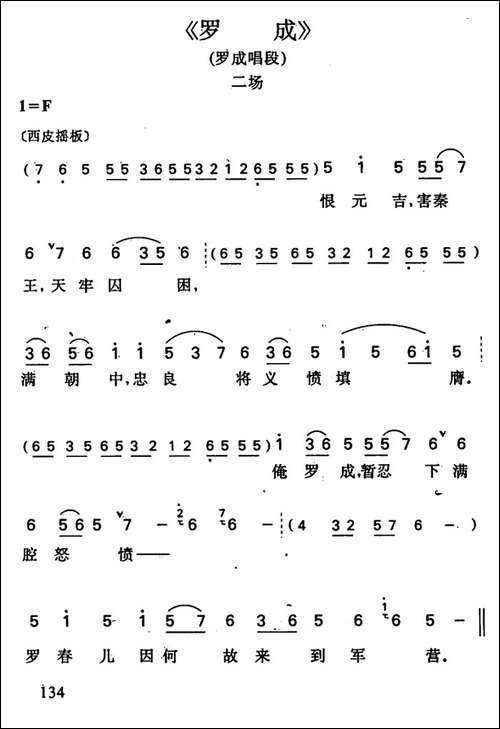 《罗 成》
(罗成唱段)
二场
1=F
〔西皮摇板〕
(7 6 5 55 3655321265 55)5 i 5 55 7
恨 元 吉,害秦
6 ˅7 6 6 35 6 (65 35 65 32 12 65 55)
王,天 牢 囚 困,
36 56 i i 5 3 7 6 36 5 i 5 6i 5
满 朝 中,忠 良 将 义 愤 填 膺.
(65 356532 12 65 55)i 36 5 55 7 6 ˅6
俺 罗 成,暂忍 下 满
6 56 5 ˅7 - 6 6 - (4 32 57 6 -)
腔 怒 愤——
5 i 5 i 57 6 36 5 6 6 5 -
罗 春 儿 因何 故 来 到 军 营.
134